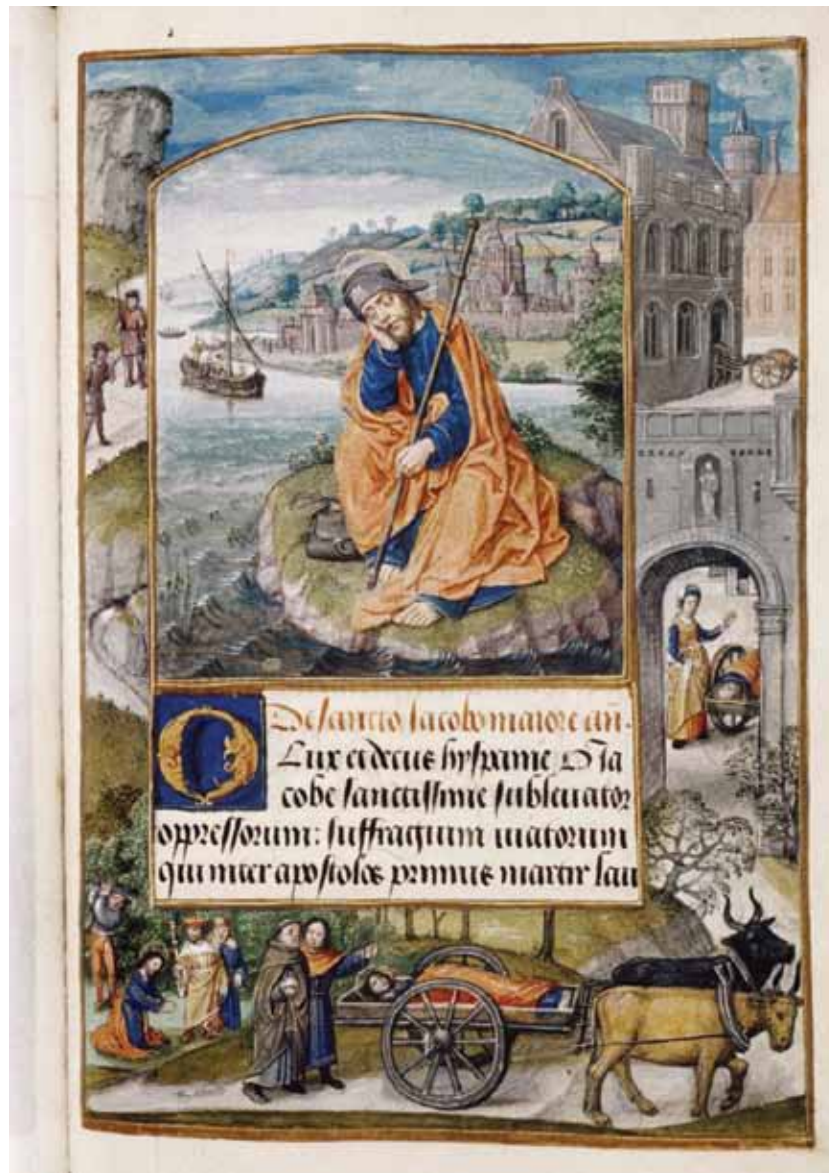 De sancto Iacobo maiore an̄.
O Lux et decus hyspanie O Ia
cobe sanctissime subleuator
oppressorum: suffragium uiatorum
qui inter apostolos primus martir lau